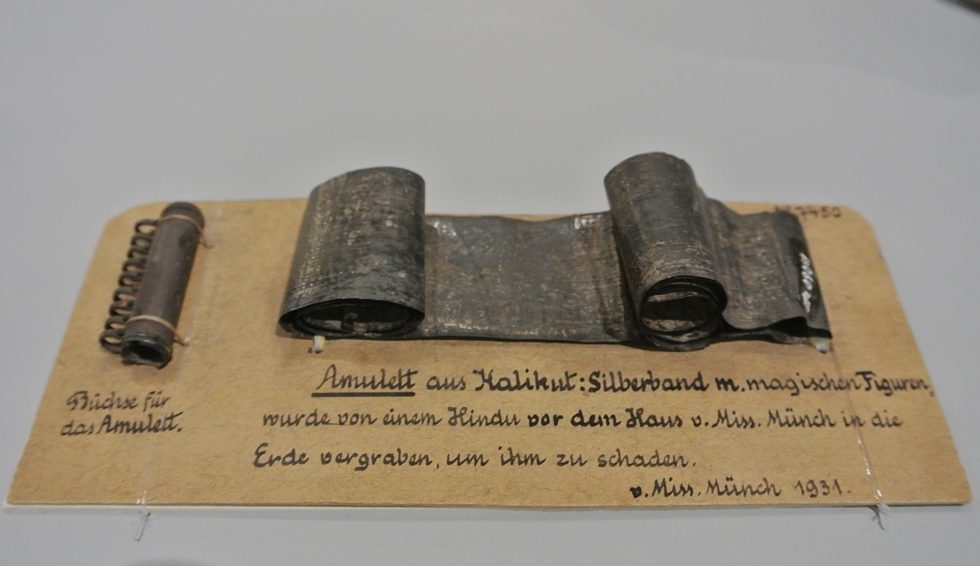 Büchse für
das Amulett.
Amulett aus Kalikut: Silberband m. magischen Figuren,
wurde von einem Hindu vor dem Haus v. Miss. Münch in die
Erde vergraben, um ihm zu schaden.
v. Miss. Münch 1931.